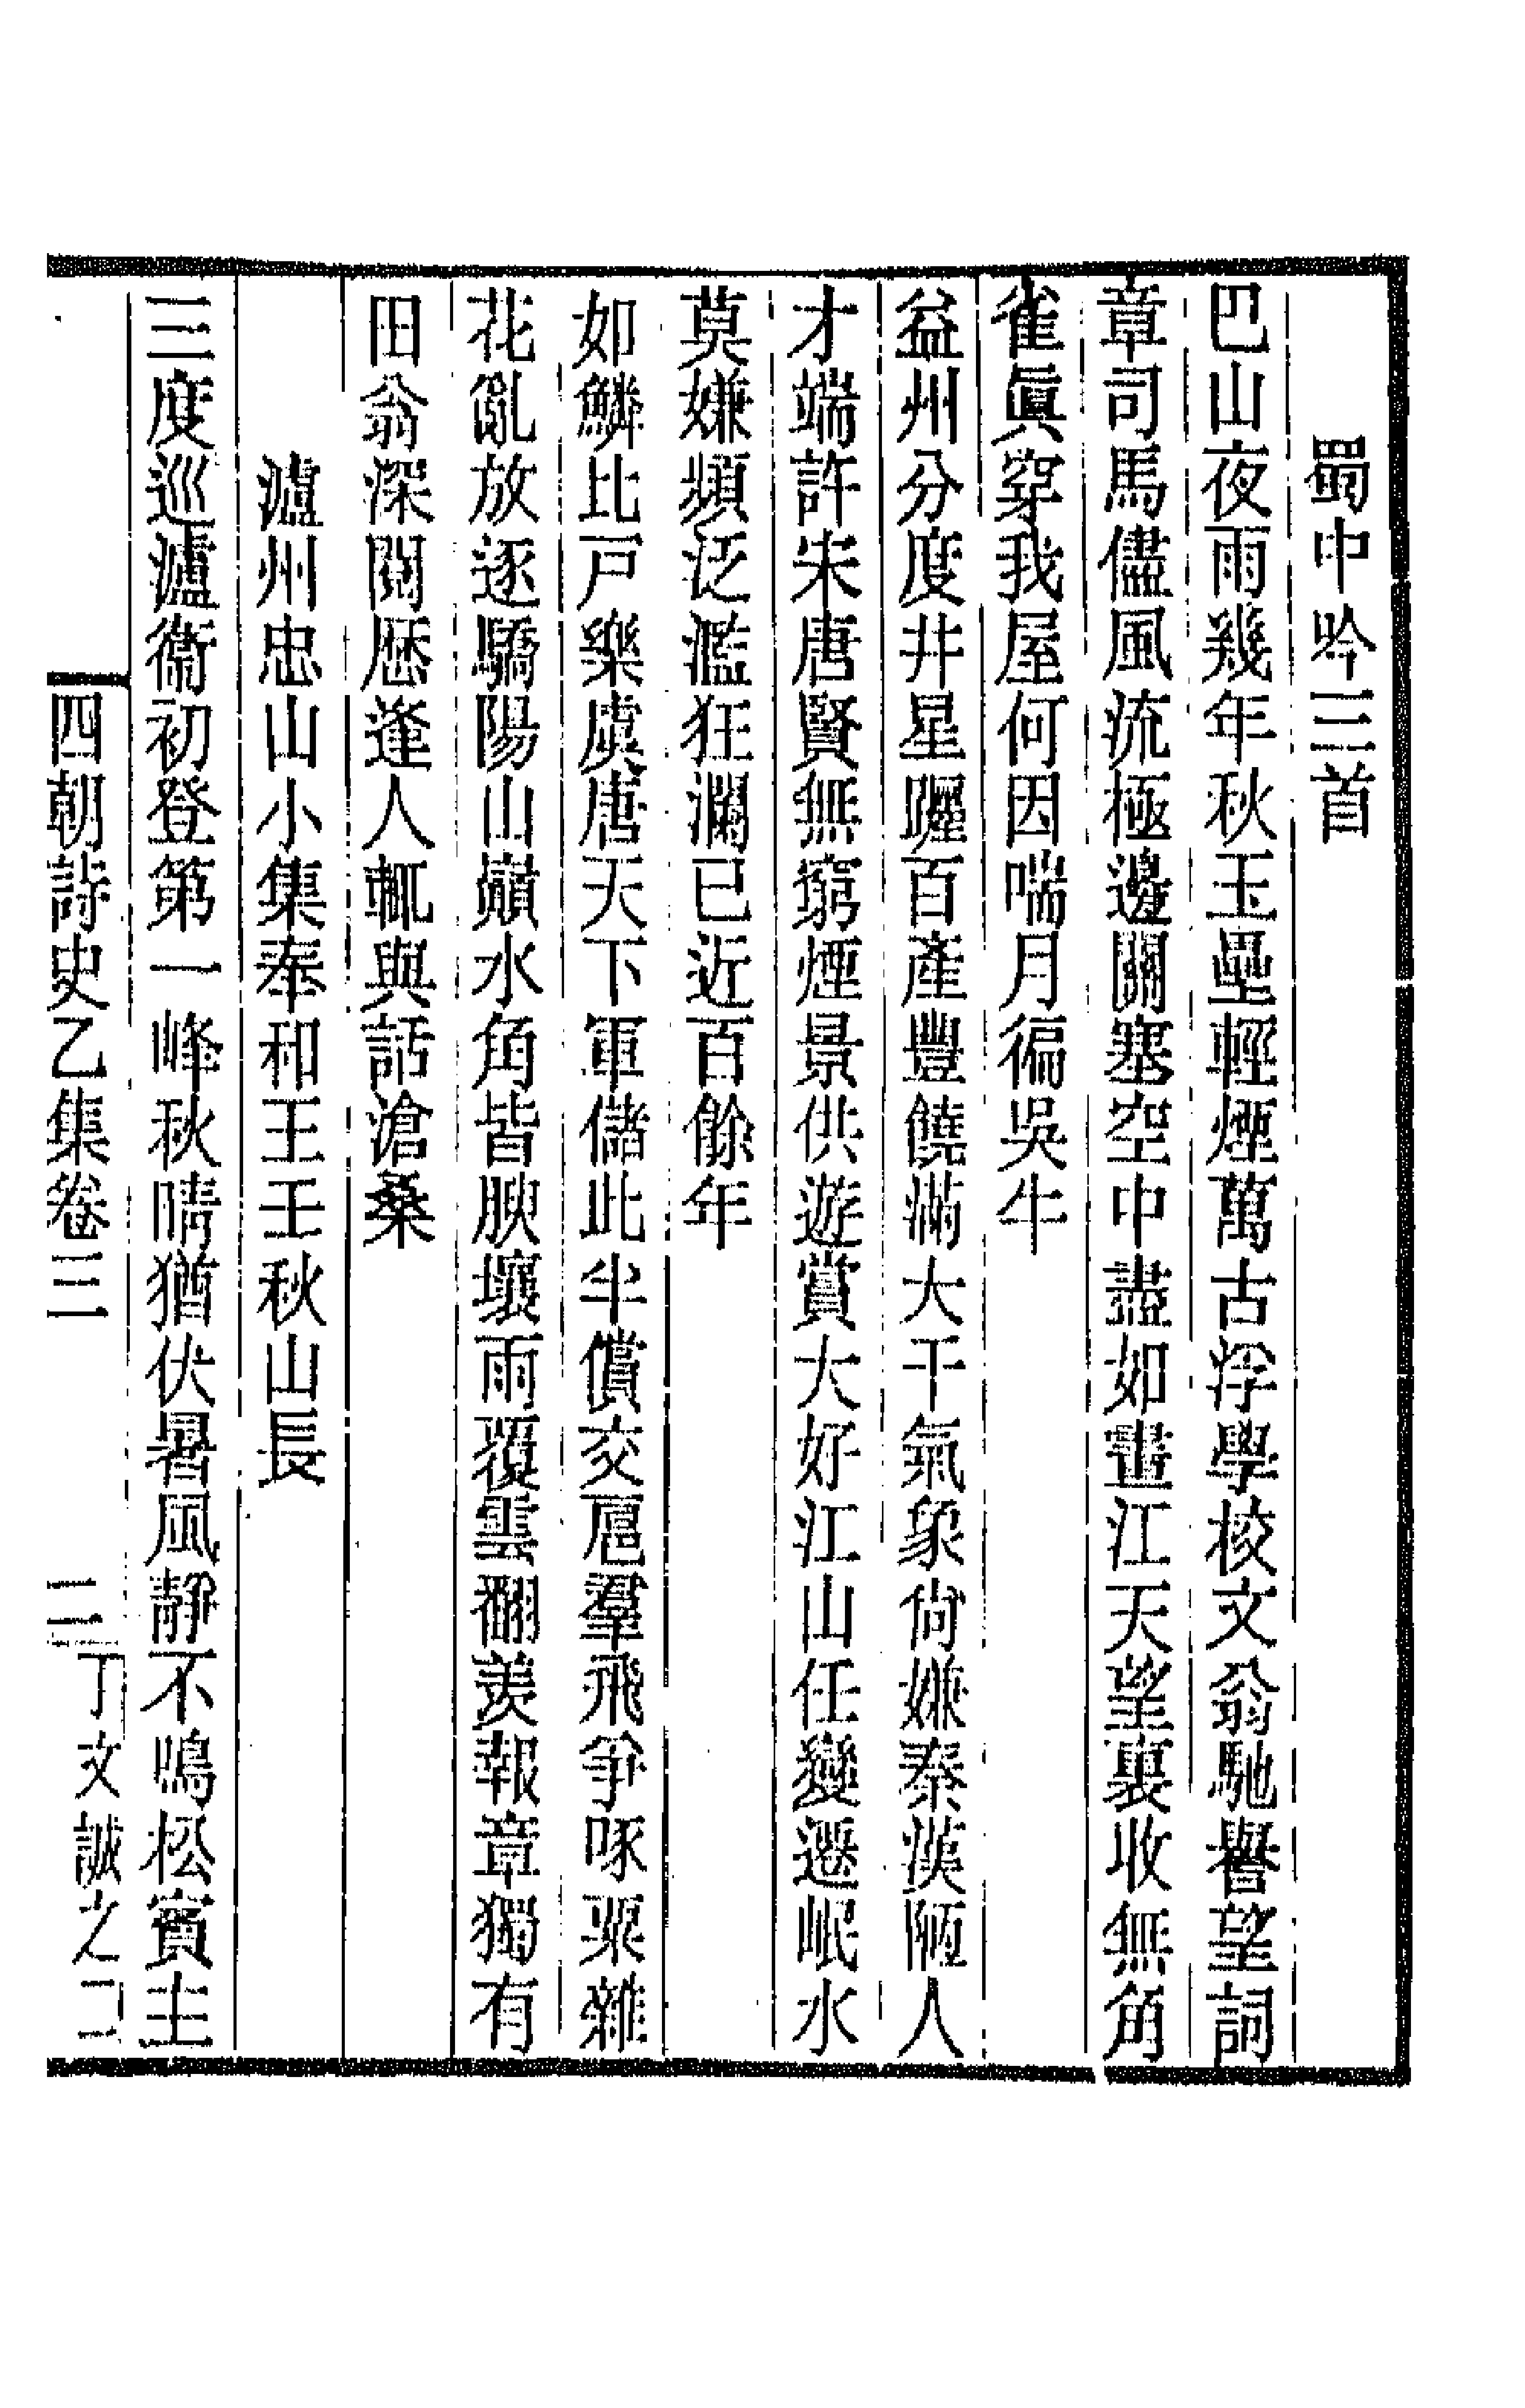 蜀中吟三首
巴山夜雨幾年秋玉壘輕煙萬古浮學校文翁馳譽望詞
章司馬儘風流極邊關塞空中盡如畫江天望裏收無角
雀眞穿我屋何因喘月徧吳牛
益州分度井星躔百產豐饒滿大干氣象尙嫌秦漢陋人
才端許宋唐賢無窮煙景供遊賞大好江山任變遷岷水
莫嫌頻泛濫狂瀾已近百餘年
如鱗比戸樂虞唐天下軍儲此半償交扈羣飛爭啄粟雜
花亂放逐驕陽山巔水角皆腴壤雨覆雲翻羨報章獨有
田翁深閱歷逢人輒與話滄桑
瀘州忠山小集奉和王壬秋山長
三度巡瀘衞初登第一峰秋晴猶伏暑風靜不鳴松賓主
四朝詩史乙集卷三 三 丁文誠之二